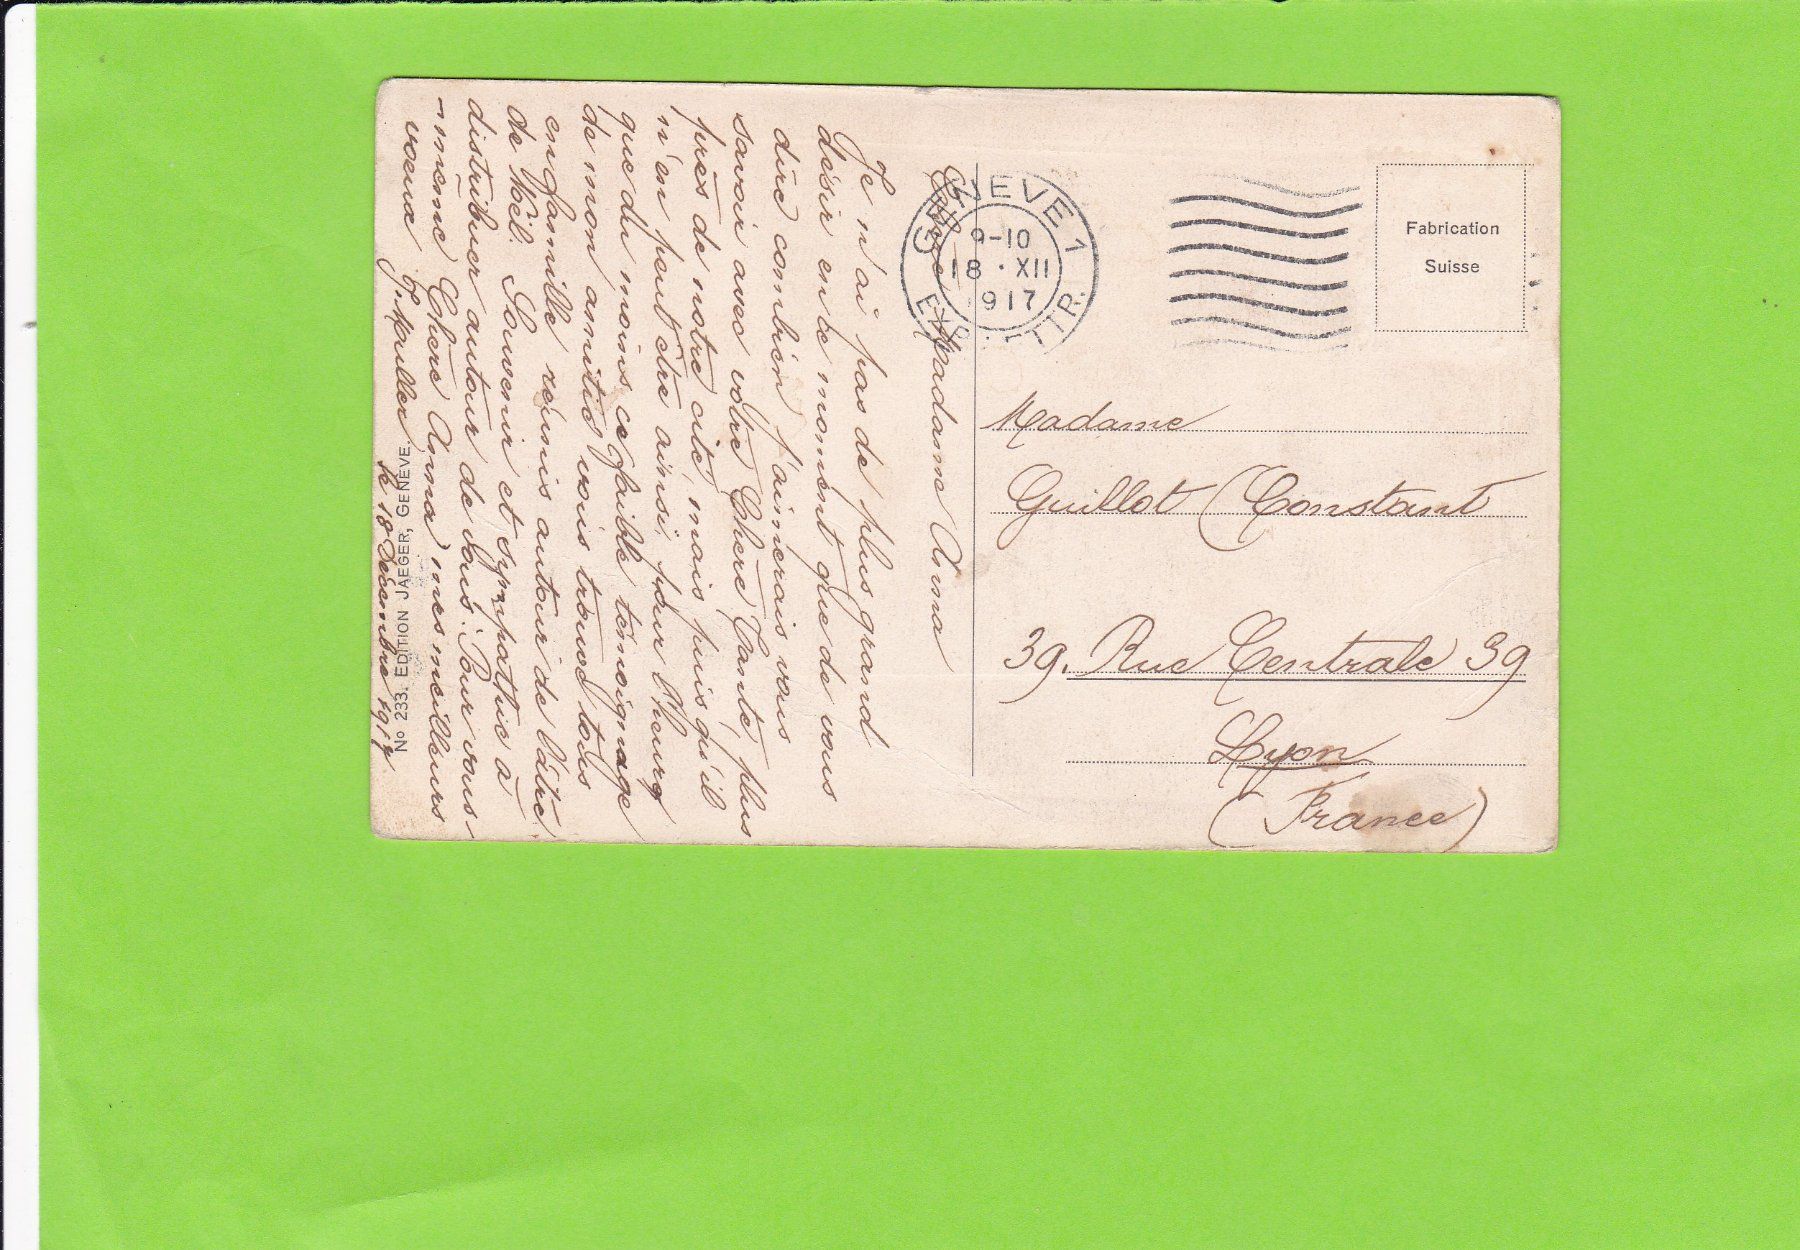 Fabrication
Suisse
GENEVE 1
9-10
18 · XII
917
EXP. LETTR.
Madame
Guillot (Constant
39. Rue Centrale 39
Lyon
(France)
Chère Madame Anna
Je n'ai pas de plus grand
désir en ce moment que de vous
dire combien j'aimerais vous
savoir avec votre Chère Tante, plus
près de notre cité, mais puis qu'il
n'en peut être ainsi, pour l'heure
que du moins ce faible témoignage
de mon amitié vous trouve tous
en famille réunis autour de l'âtre
de Noël. Souvenir et sympathie à
distribuer autour de vous. Pour vous-
-même Chère Anna, mes meilleurs
voeux J. Muller.
le 18 Décembre 1917
No 233. EDITION JAEGER, GENÈVE.